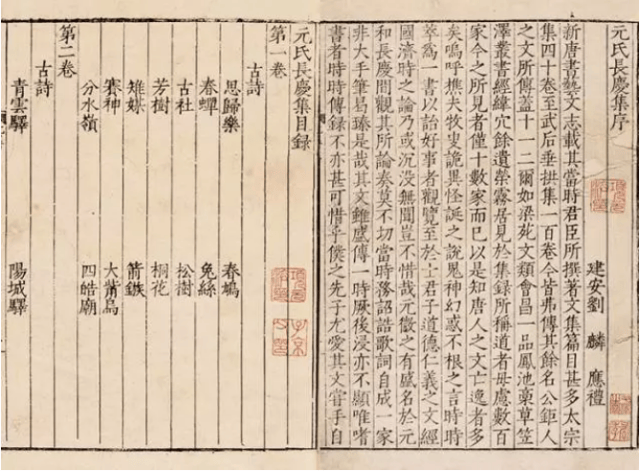 元氏長慶集序
建安劉麟應禮
新唐書藝文志載其當時君臣所撰著文集篇目甚多太宗
集四十卷至武后垂拱集一百卷今皆弗傳其餘名公鉅人
之文所傳蓋十一二爾如梁苑文類會昌一品鳳池藁草笠
澤叢書經緯宂餘遺榮霧居見於集録所稱道者毋慮數百
家今之所見者僅十數家而已以是知唐人之文亡逸者多
矣嗚呼樵夫牧叟詭異怪誕之說鬼神幻惑不根之言時時
萃為一書以詒好事者觀覽至於士君子道德仁義之文經
國濟時之論乃或沉没無聞豈不惜哉元微之有盛名於元
和長慶間觀其所論奏莫不切當時務詔誥歌詞自成一家
非大手筆曷臻是哉其文雖盛傳一時厥後浸亦不顯唯嗜
書者時時傳録不亦甚可惜乎僕之先子尤愛其文嘗手自
元氏長慶集目録
第一卷
古詩
思歸樂 春鳩
春蟬 兔絲
古社 松樹
芳樹 桐花
雉媒 箭鏃
賽神 大觜烏
分水嶺 四皓廟
第二卷
古詩
青雲驛 陽城驛